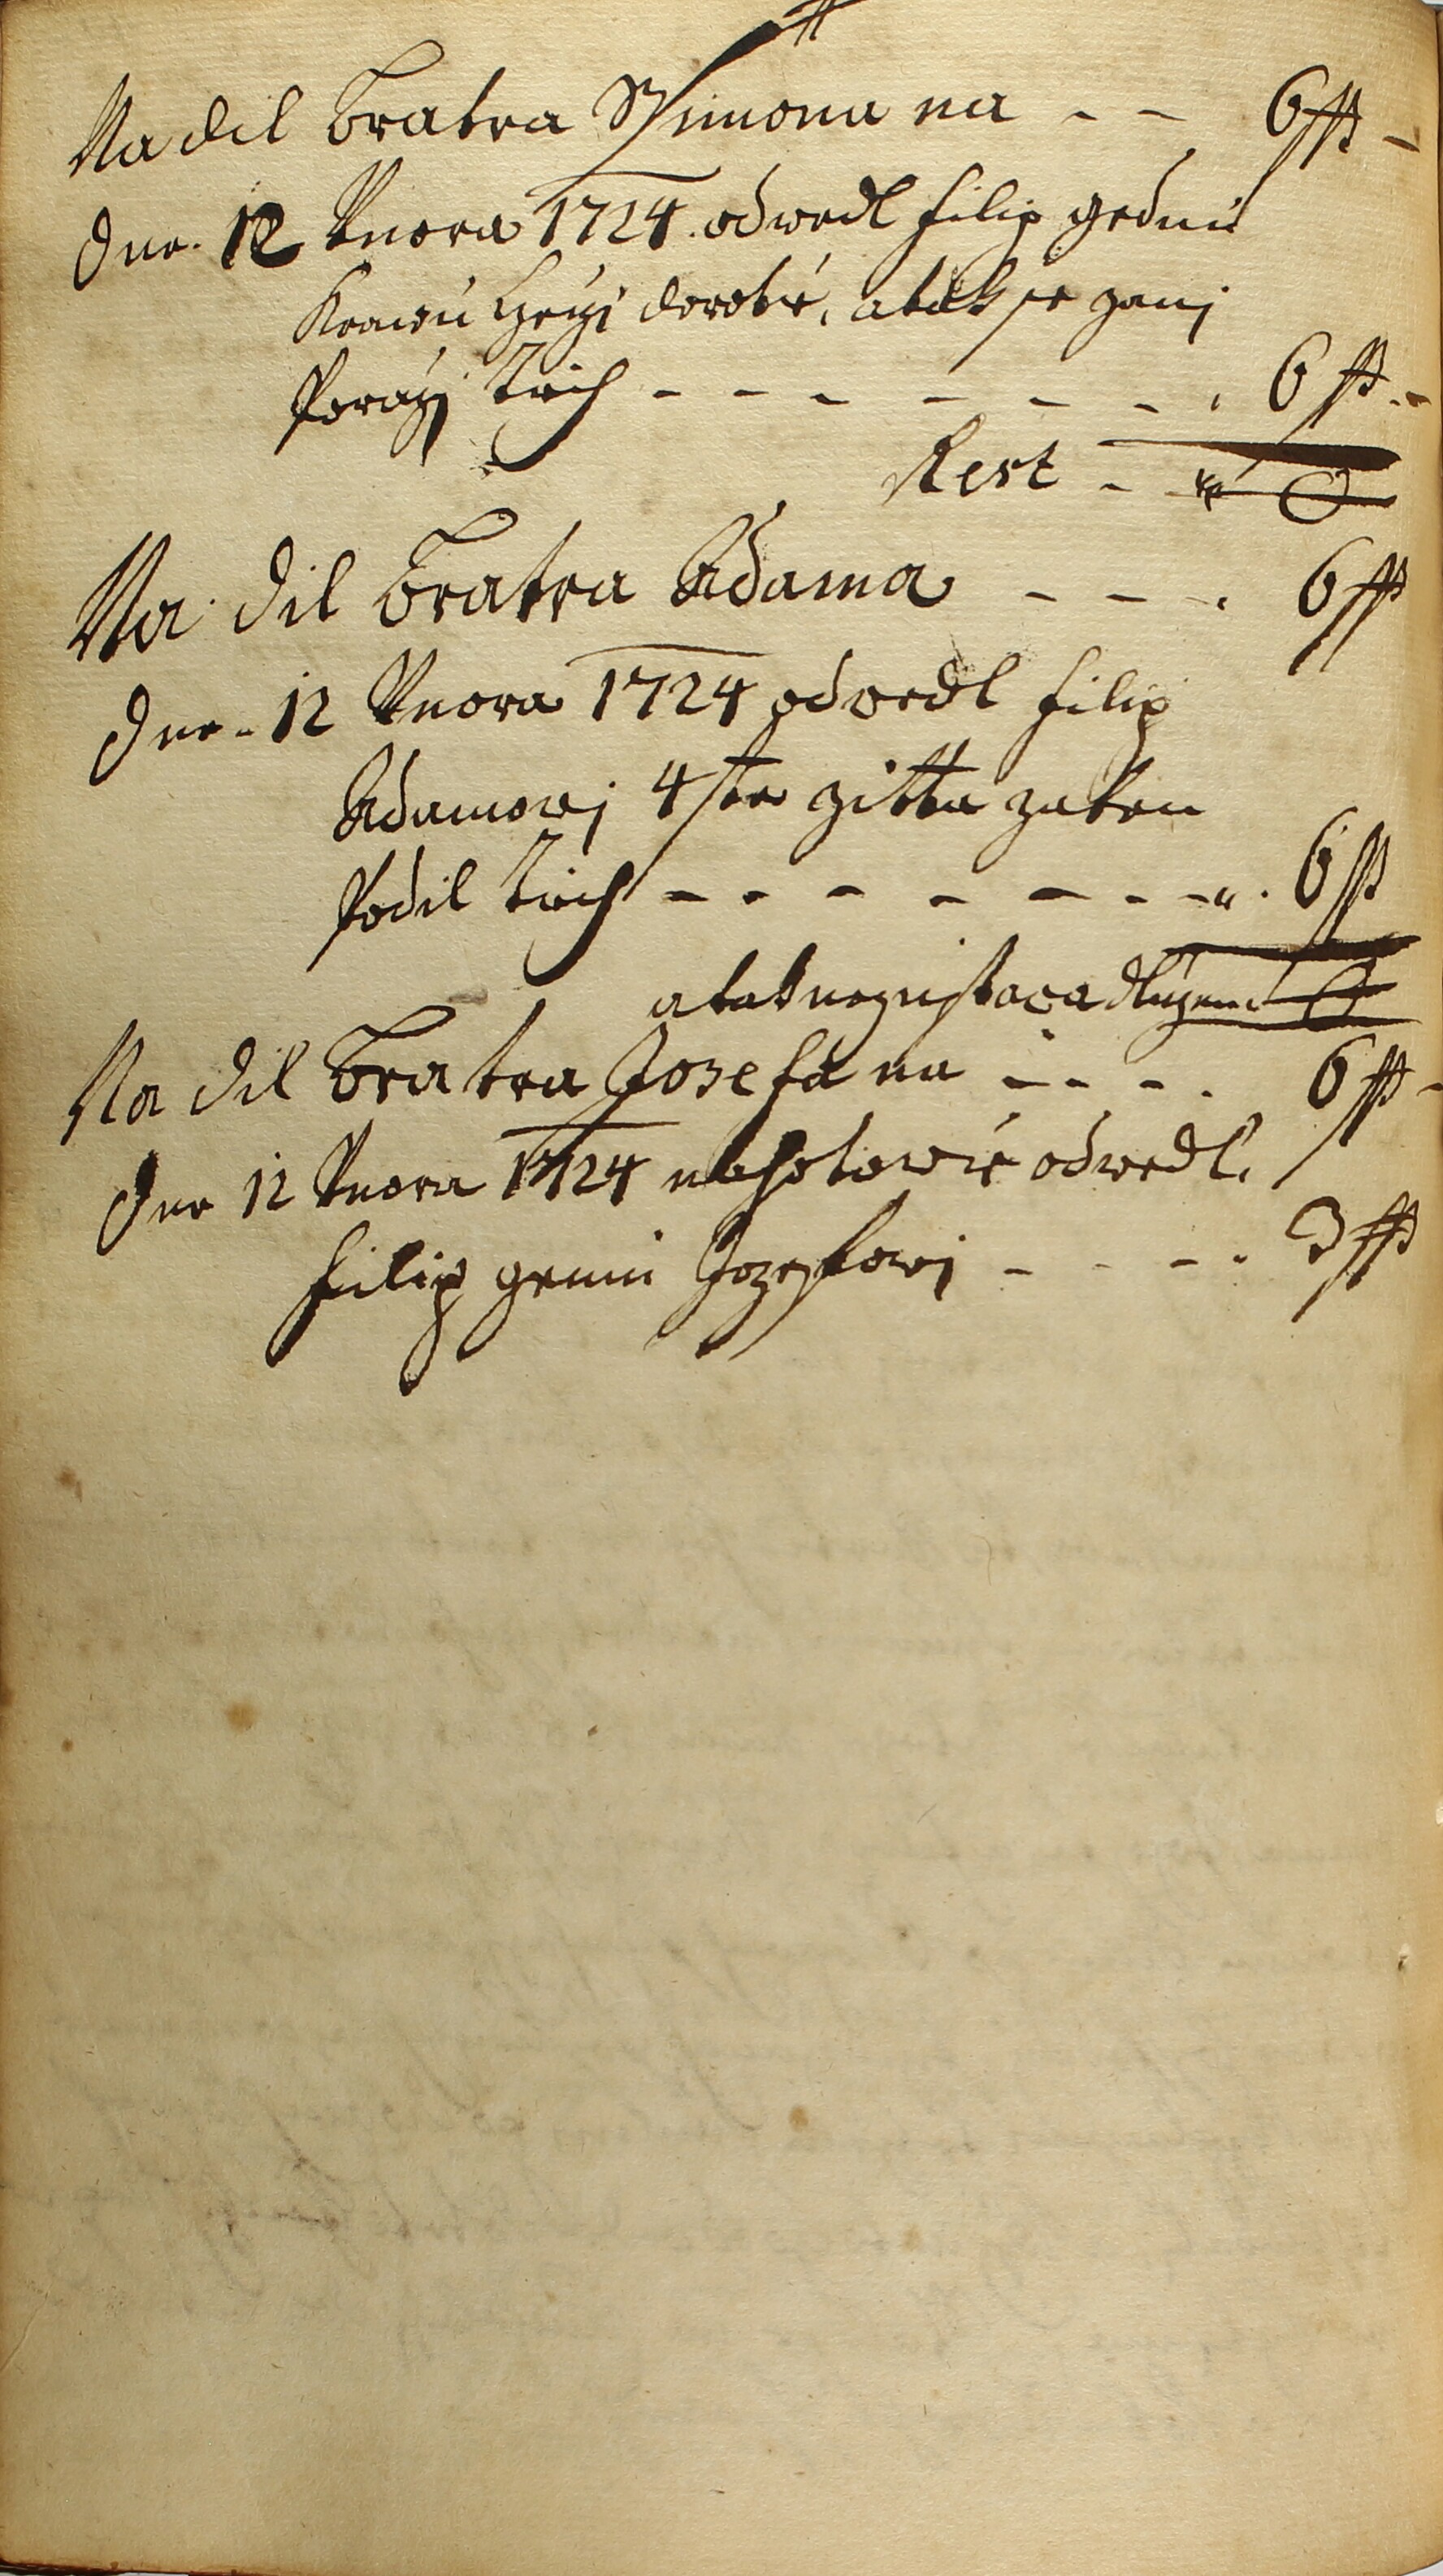 Na dil Bratra Ssimona na - - 6 ss -
Dne. 12 Vnora 1724. odwedl Filip gednu
Krawu dorotie, a tak se za nj
Porazj Tiech - - - - - - - 6 ss. -
Rest - - 0
Na dil Bratra Adama - - - . 6 ss
Dne - 12 Vnora 1724 odwedl Filip
Adamowj 4 ste zitta za ten
Podil Tiech - - - - - - - - . 6 ss
a tak nezustawa dluzen 0
Na dil Bratra Josefa na - - - . 6 ss -
Dne 12 Vnora 1724 na hotowie odwedl.
Filip gemu Jozeffowj - - - - . 3 ss